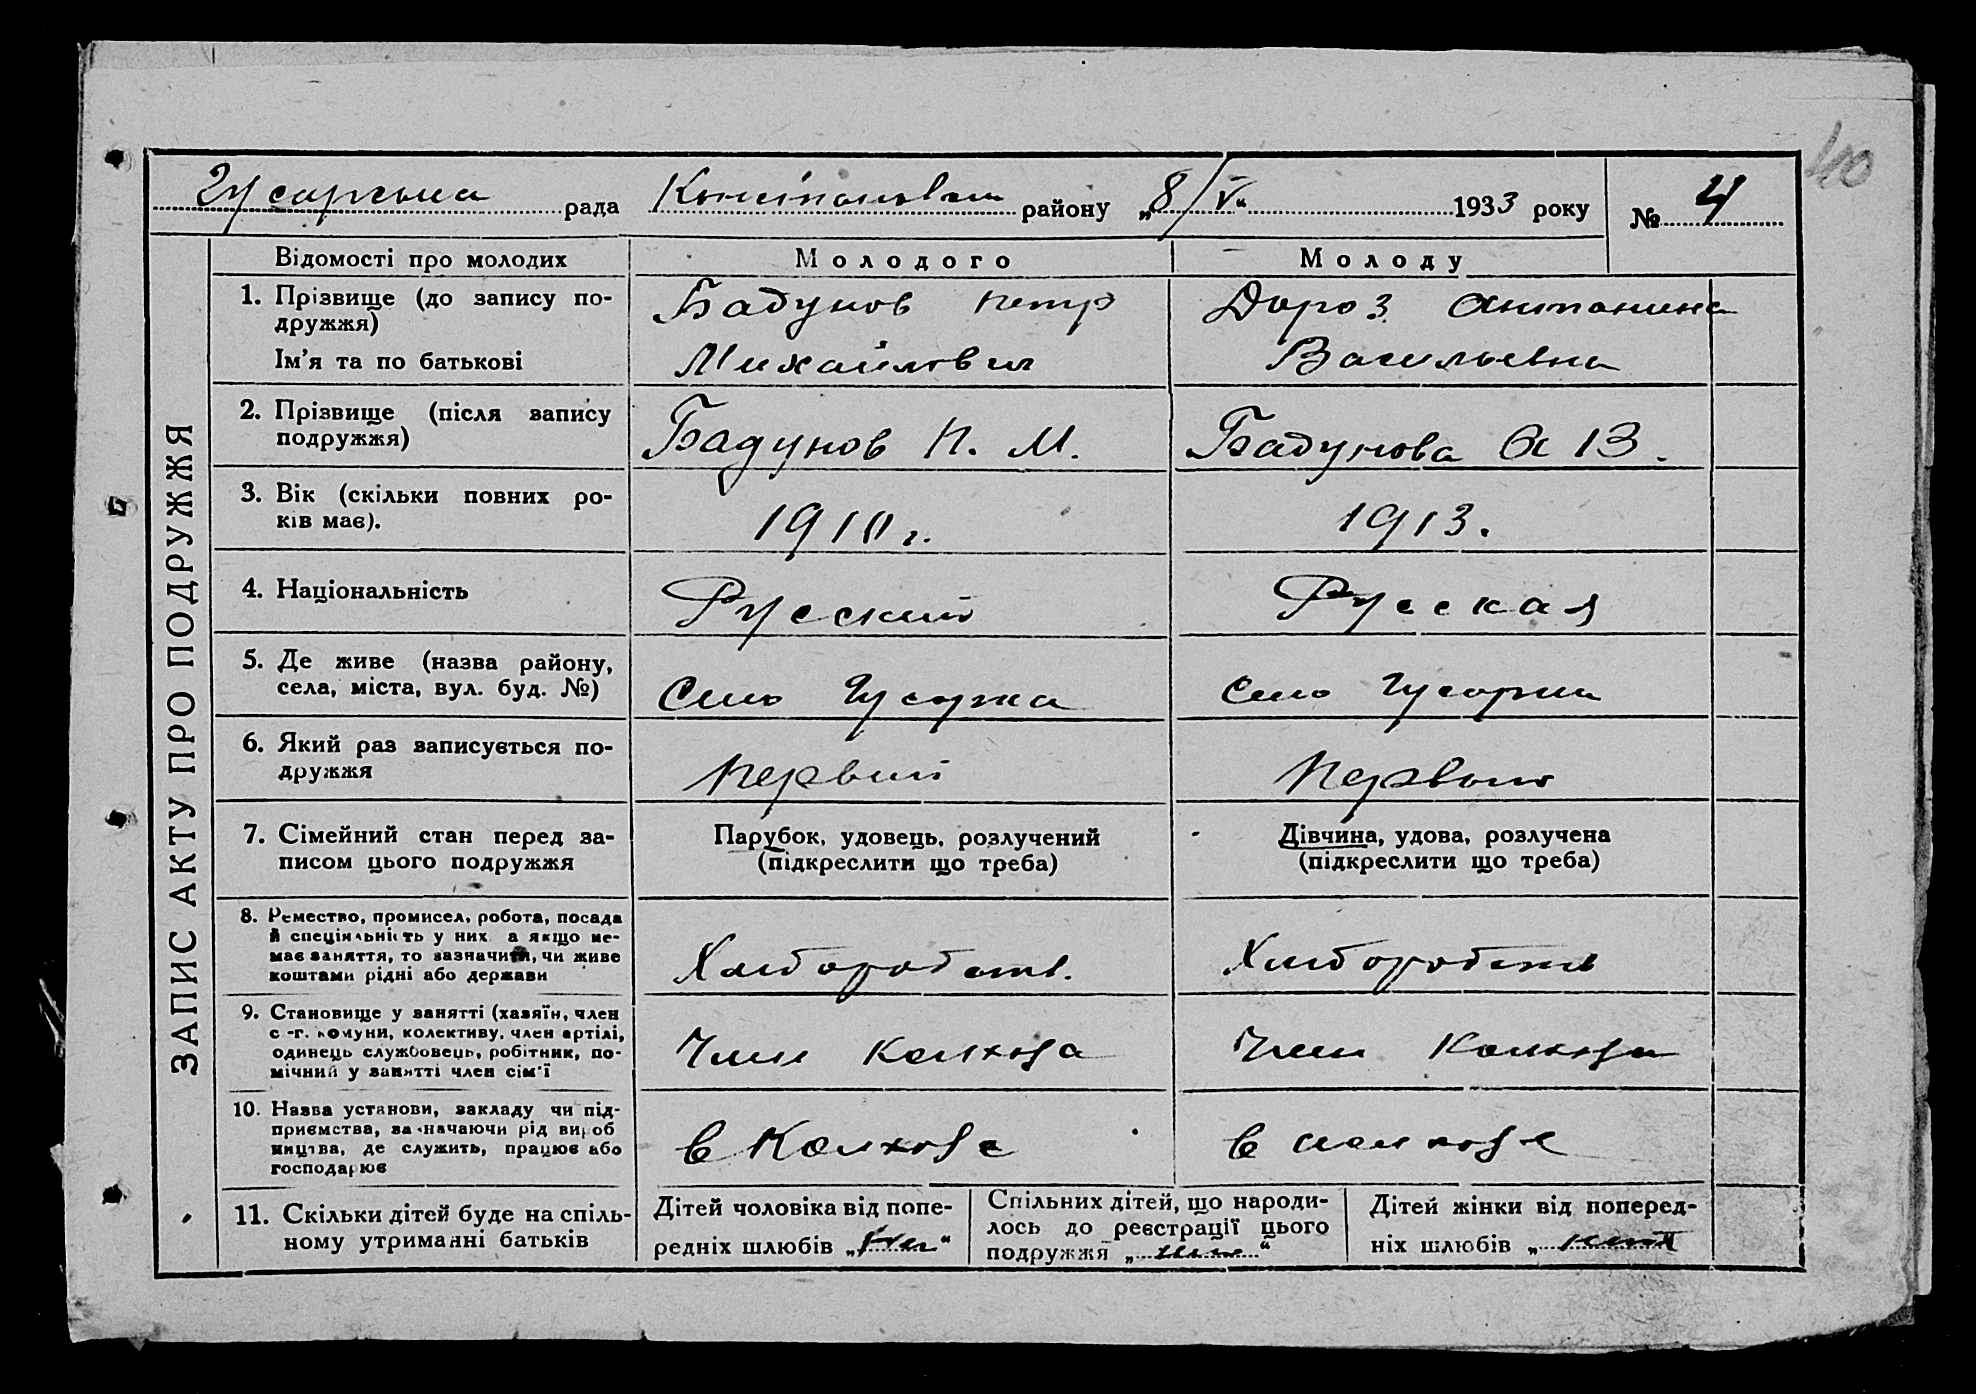 40
Гусарська рада Константиновск району „8/V“ 1933 року № 4
ЗАПИС АКТУ ПРО ПОДРУЖЖЯ
Відомості про молодих Молодого Молоду
1. Прізвище (до запису по-
дружжя)
Ім'я та по батькові
Бадунов Петр
Михайлович
Дороз Антонина
Васильевна
2. Прізвище (після запису
подружжя)
Бадунов П. М.
Бадунова А В.
3. Вік (скільки повних ро-
ків має).
1910 г.
1913.
4. Національність
Русский
Русская
5. Де живе (назва району,
села, міста, вул. буд. №)
Село Гусарка
Село Гусарка
6. Який раз записується по-
дружжя
Первый
Первый
7. Сімейний стан перед за-
писом цього подружжя
Парубок, удовець, розлучений
(підкреслити що треба)
Дівчина, удова, розлучена
(підкреслити що треба)
8. Ремество, промисел, робота, посада
й спеціяльність у них, а якщо не-
має заняття, то зазначити, чи живе
коштами рідні або держави
Хлебороботв.
Хлебороботв
9. Становище у занятті (хазяїн, член
с.-г. комуни, колективу, член артілі,
одинець службовець, робітник, по-
мічний у занятті член сім'ї
Член Колхоза
Член Колхоза
10. Назва установи, закладу чи під-
приємства, зазначаючи рід вироб
ництва, де служить, працює або
господарює
в Колхозе
в колхозе
11. Скільки дітей буде на спіль-
ному утриманні батьків
Дітей чоловіка від попе-
редніх шлюбів „нет“
Спільних дітей, що народи-
лось до реєстрації цього
подружжя „ “
Дітей жінки від поперед-
ніх шлюбів „ нет